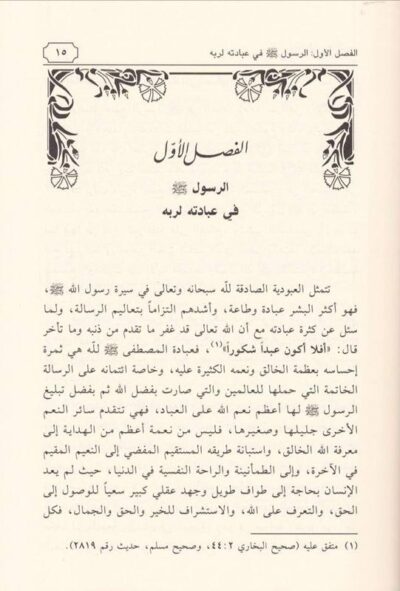 الفصل الأول: الرسول ﷺ في عبادته لربه
١٥
الفصل الأول
الرسول ﷺ
في عبادته لربه
تتمثل العبودية الصادقة للّه سبحانه وتعالى في سيرة رسول الله ﷺ،
فهو أكثر البشر عبادة وطاعة، وأشدهم التزاماً بتعاليم الرسالة، ولما
سئل عن كثرة عبادته مع أن الله تعالى قد غفر ما تقدم من ذنبه وما تأخر
قال: «أفلا أكون عبداً شكوراً»(١)، فعبادة المصطفى ﷺ للّه هي ثمرة
إحساسه بعظمة الخالق ونعمه الكثيرة عليه، وخاصة ائتمانه على الرسالة
الخاتمة التي حملها للعالمين والتي صارت بفضل الله ثم بفضل تبليغ
الرسول ﷺ لها أعظم نعم الله على العباد، فهي تتقدم سائر النعم
الأخرى جليلها وصغيرها، فليس من نعمة أعظم من الهداية إلى
معرفة الله الخالق، واستبانة طريقه المستقيم المفضي إلى النعيم المقيم
في الآخرة، وإلى الطمأنينة والراحة النفسية في الدنيا، حيث لم يعد
الإنسان بحاجة إلى طواف طويل وجهد عقلي كبير سعياً للوصول إلى
الحق، والتعرف على الله، والاستشراف للخير والحق والجمال، فكل
(١) متفق عليه (صحيح البخاري ٢: ٤٤، وصحيح مسلم، حديث رقم ٢٨١٩).